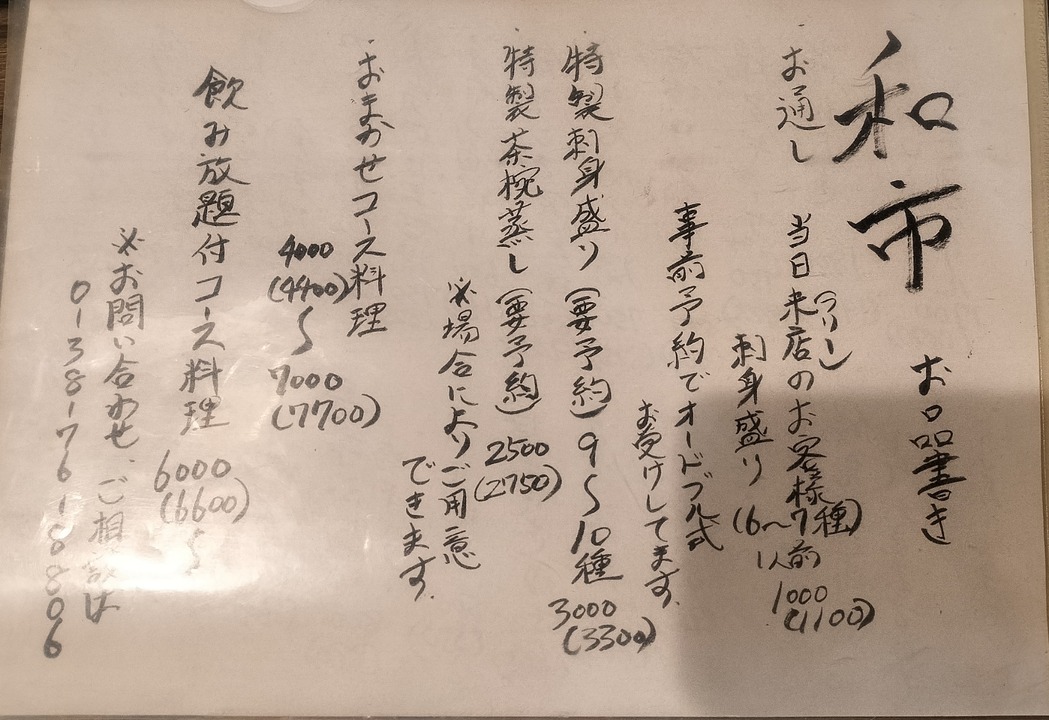 和市
お品書き
お通し 当日来店のお客様
刺身盛り(6〜7種)
1人前
1000
(1100)
事前予約でオードブル式
お受けしてます。
特製刺身盛り(要予約)9〜10種
3000
(3300)
特製茶椀蒸し(要予約)
2500
(2750)
※場合によりご用意
できます。
・おまかせコース料理
4000
(4400)
〜
7000
(7700)
飲み放題付コース料理
6000
(6600)
〜
※お問い合わせ、ご相談は
0138-76-8806